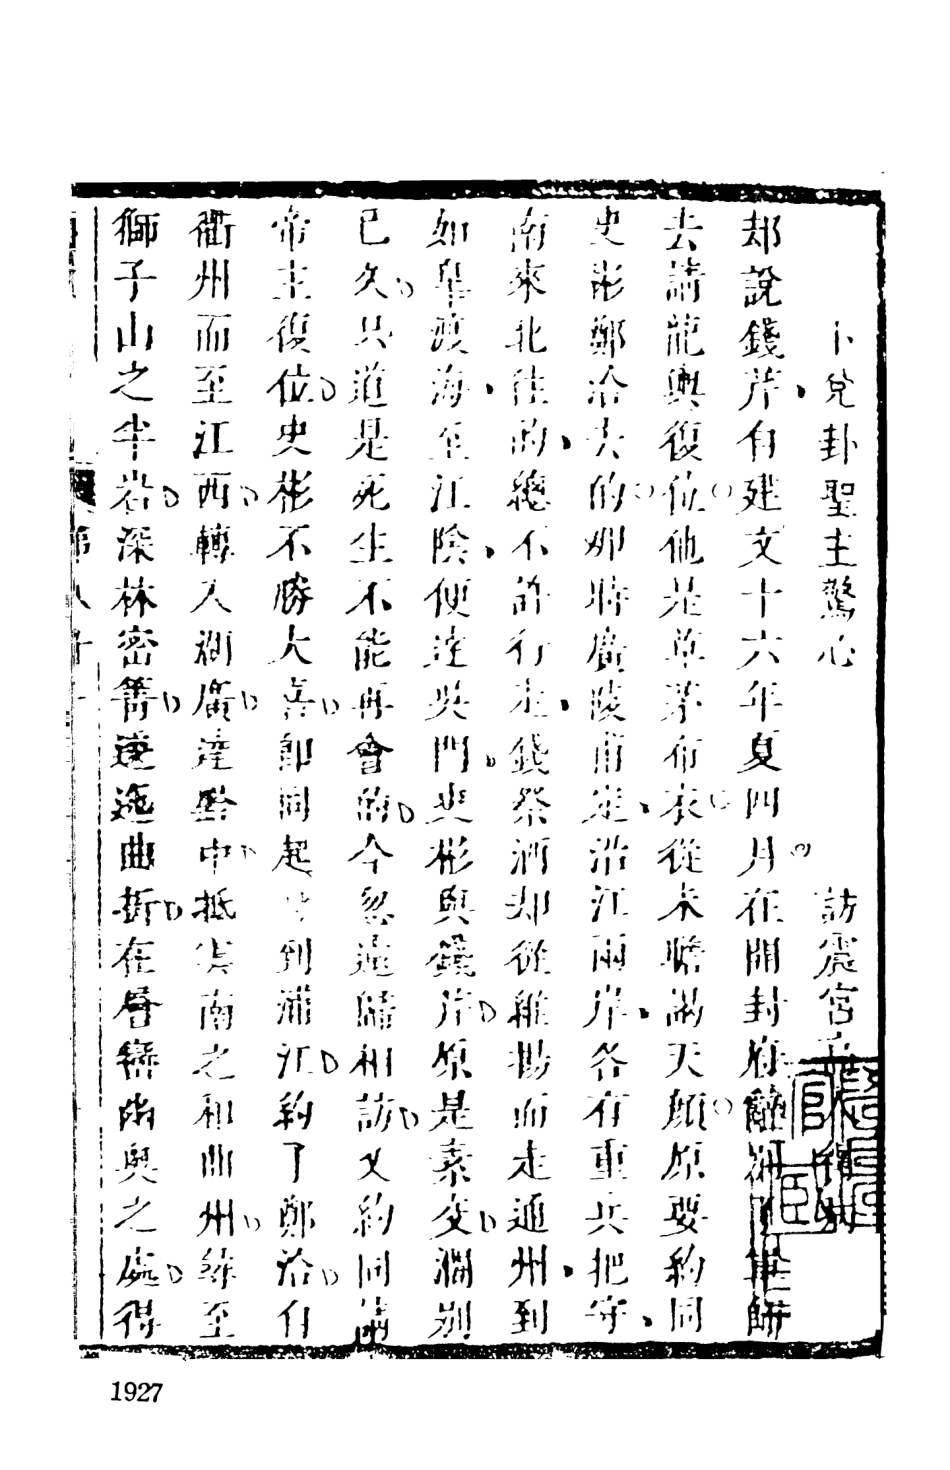 卜兌卦聖主驚心　訪震宮
却說錢芹自建文十六年夏四月在開封府辭別了軍師
去請龍輿復位他是草茅布衣從未瞻謁天顏原要約同
史彬鄭洽去的那時廣陵甫定沿江兩岸各有重兵把守
南來北往的總不許行走錢祭酒却從維揚而走通州到
如皐渡海至江陰便達吳門史彬與錢芹原是素交濶別
已久只道是死生不能再會的今忽遠歸相訪又約同請
帝主復位史彬不勝大喜卽同起身到浦江約了鄭洽自
衢州而至江西轉入湖廣達黔中抵滇南之和曲州尋至
獅子山之半岩深林密箐逶迤曲折在層巒幽奧之處得
1927